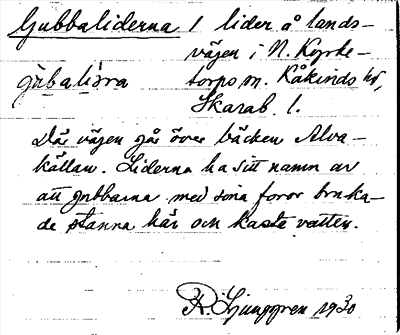 Gubbaliderna / lider å lands-
vägen i N. Kyrke-
gubalira torps sn. Kåkinds hd,
Skarab. l.
Där vägen går över bäcken Alva-
källan. Liderna ha sitt namn av
att gubbarna med sina foror bruka-
de stanna här och kasta vatten.
R. Ljunggren 1930